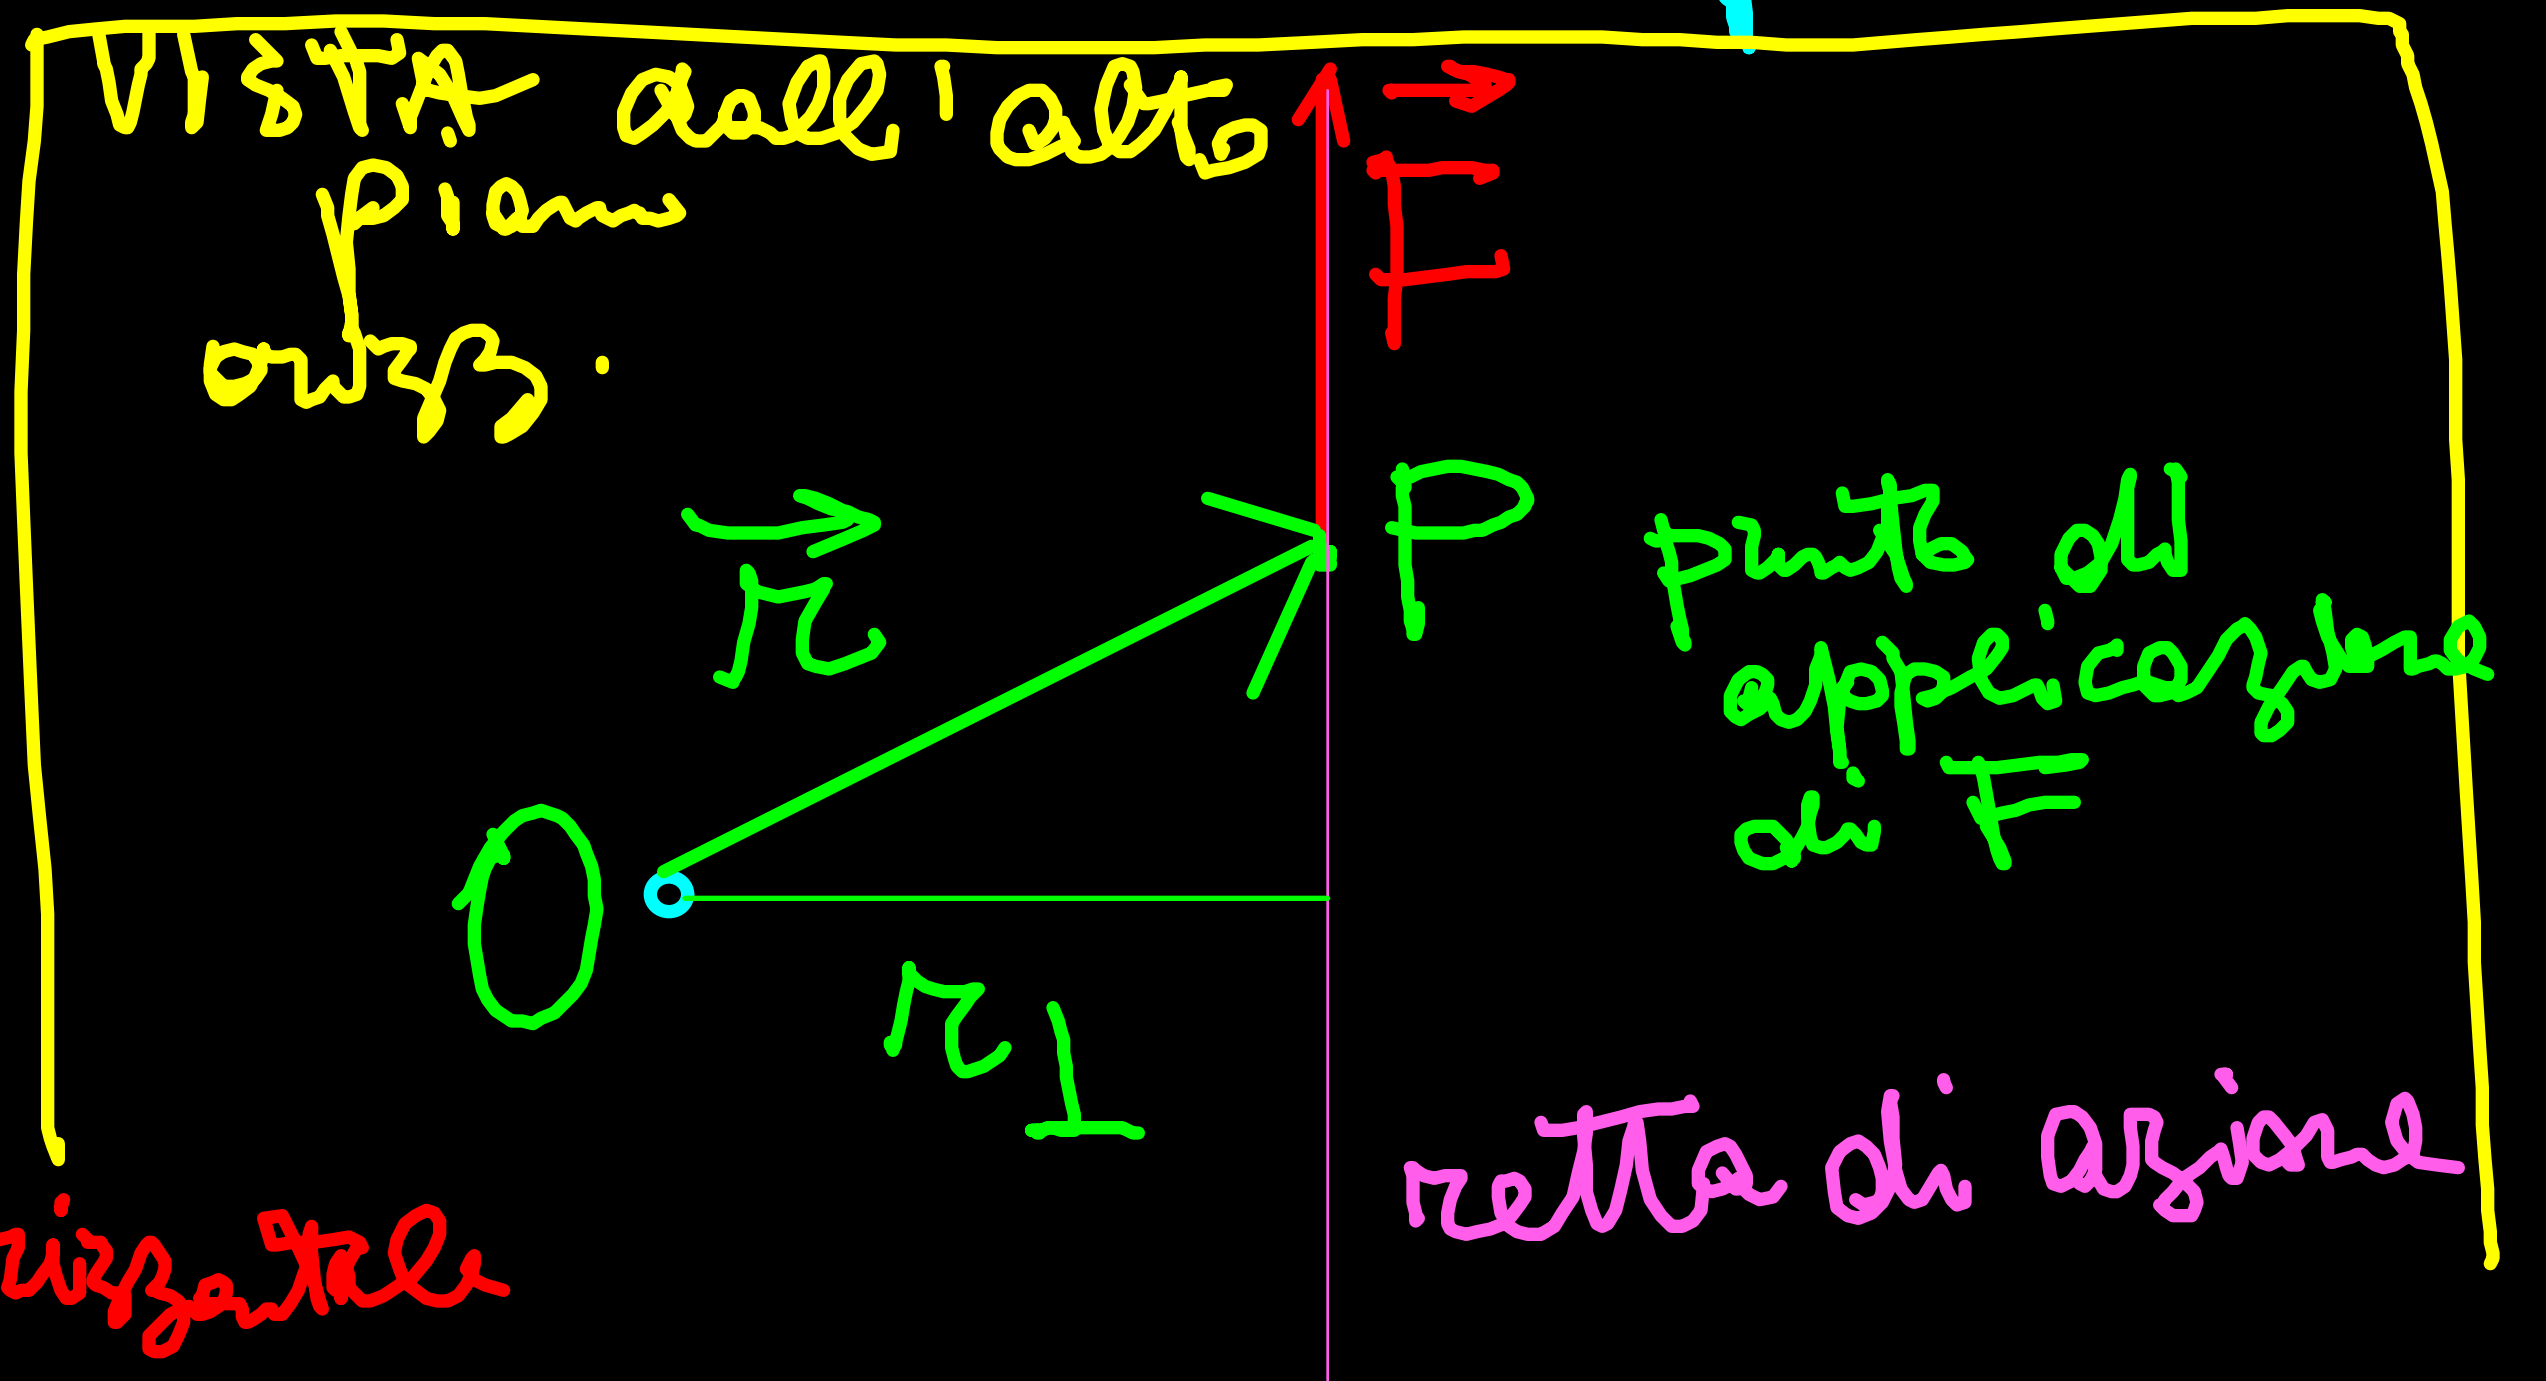 VISTA dall'alto
piano
orizz.
F
r
P punto di
applicazione
di F
O
r⊥
retta di azione
rizzontale